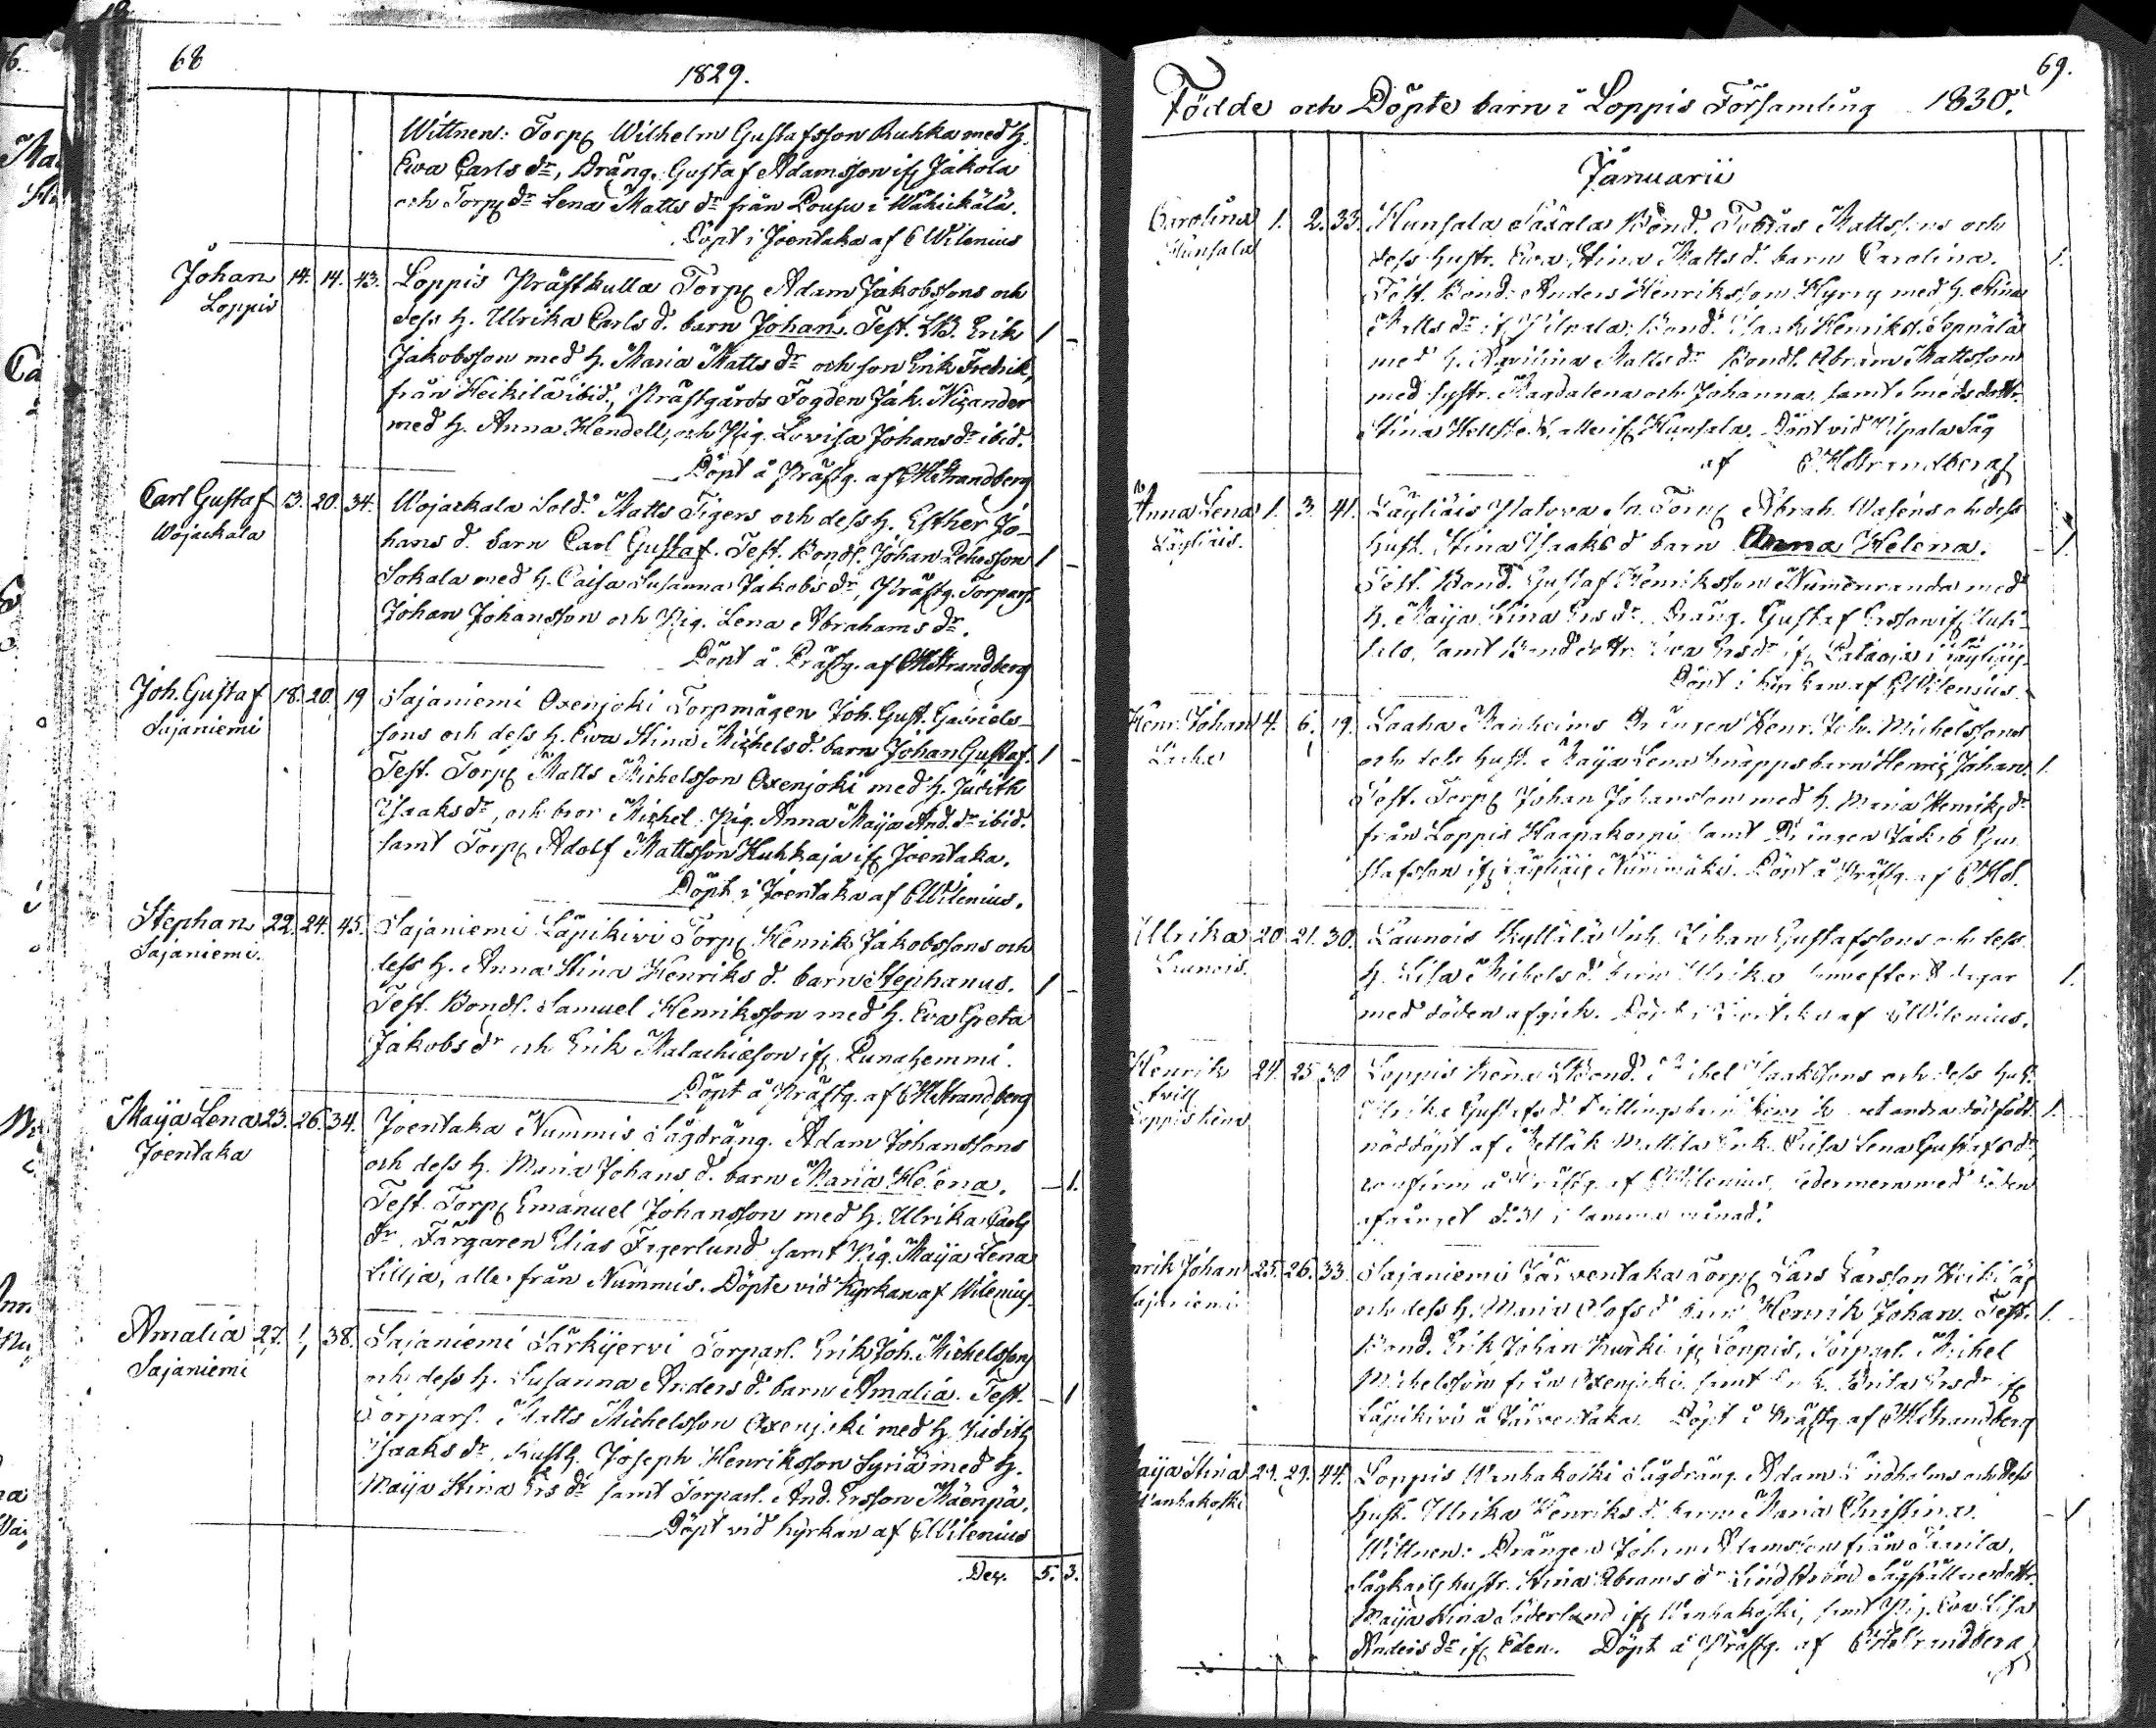 68
1829.
Wittnen: Torp. Wilhelm Gustafsson Ruhka med h.
Ewa Carls dr, Dräng. Gustaf Adamsson ifr. Jakola
och Torp. dr Lena Matts dr från Pousu i Wäkickälä.
Döpt i Joentaka af C Wilenius
Johan 14. 14. 43. Loppis Prästkulla Torp. Adam Jakobssons och
Loppis dess h. Ulrika Carls d. barn Johan. Test. Erik 1 -
Jakobsson med h. Maria Matts dr och son Erik Fredrik,
från Heikilä ibid., Prästgårds Fogden Jak. Nizander
med h. Anna Hendell, och Pig. Lovisa Johans dr ibid.
Döpt å Prästg. af CHStrandberg
Carl Gustaf 13. 20. 34. Wojackala Sold. Matts Tigers och dess h. Esther Jo-
Wojackala hans d. barn Carl Gustaf. Test. Bonds. Johan Pehrsson 1 -
Sokala med h. Caisa Susanna Jakobs dr, Prästg. Torpars.
Johan Johansson och Pig. Lena Abrahams dr.
Döpt å Prästg. af CHStrandberg
Joh. Gustaf 18. 20. 19 Sajaniemi Oxenjoki Torpmågen Joh. Gust. Gabriels-
Sajaniemi sons och dess h. Ewa Stina Michels d. barn Johan Gustaf. 1 -
Test. Torp. Matts Michelsson Oxenjoki med h. Judith
Isaaks dr, och bror Michel, Pig. Anna Maija And. dr ibid.
samt Torp. Adolf Mattsson Huhkaja ifr. Joentaka.
Döpt i Joentaka af CWilenius.
Stephan 22. 24. 45. Sajaniemi Läpikivi Torp. Henrik Jakobssons och
Sajaniemi. dess h. Anna Stina Henriks d. barn Stephanus. 1 -
Test. Bonds. Samuel Henriksson med h. Eva Greta
Jakobs dr och Erik Malachiesson ifr. Punahemmi.
Döpt å Prästg. af CHStrandberg
Maija Lena 23. 26. 34. Joentaka Nummis Sågdräng. Adam Johanssons
Joentaka och dess h. Maria Johans d. barn Maria Helena. - 1.
Test. Torp. Emanuel Johansson med h. Ulrika Carls
dr, Färgaren Elias Tigerlund samt Pig. Maija Lena
Lillja, alle från Nummis. Döpte vid Kyrkan af Wilenius
Amalia 27. 1. 38. Sajaniemi Särkijervi Torpars. Erik Joh. Michelssons
Sajaniemi och dess h. Susanna Anders d. barn Amalia. Test. - 1
Torpars. Matts Michelsson Oxenjoki med h. Judith
Isaaks dr, Rusth. Joseph Henriksson Syriä med h.
Maija Stina Ers dr samt Torpars. And. Ersson Mäenpä.
Döpt vid kyrkan af CWilenius
Dec. 5. 3.
69.
Födde och Döpte barn i Loppis Församling 1830.
Januarii
Carolina 1. 2. 33. Hunsala Saxala Bond. Tobias Mattssons och
Hunsala dess hustr. Ewa Stina Matts d. barn Carolina. 1.
Test. Bond. Anders Henriksson Kyrig med h. Stina
Matts dr ifr. Pilpala, Bond. Isaak Henriks. Seppälä
med h. Matts dr Bonds. Abram Mattsson
med hustr. Magdalena och Johanna, samt smeds dottr.
Stina ifr. Hunsala. Döpt vid Pilpala Såg
af CHStrandberg
Anna Lena 1. 3. 41. Läyliäis Torp. Abrah. Waséns och dess
Läyliäis. hust. Stina Isaaks d barn Anna Helena. - 1.
Test. Bond. Gustaf Henriksson Nummenranda med
h. Maija Stina Ers dr, Dräng. Gustaf Ersson ifr.
samt Bond dottr. Ewa Ers dr ifr. i Läyliäis.
Döpt i kyrkan af CWilenius.
Henr. Johan 4. 6. 19. Laaha Manheims Drängen Henr. Joh. Michelssons
och dess hust. Maija Lena Knapps barn Henric Johan. 1.
Test. Torp. Johan Johansson med h. Maria Henriks dr
från Loppis Haapakorpi samt Drängen Jakob Gus-
tafsson ifr. Läyliäis Nummimäki. Döpt å Prästg. af CHS.
Ulrika 20 21. 30. Launois Kyttälä Inh. Johan Gustafssons och dess
Launois. h. Lisa Michels d. barn Ulrika, som efter 8 dagar 1.
med döden afgick. Döpt i Joentaka af CWilenius.
Henrik 24. 25 30 Loppis Bond. Michel Isaakssons och dess hust.
Loppis Ulrika Gustafs d. tvillingsbarn Henrik, det andra dödfödt. 1.
nöddöpt af Mattila Enk. Lena Gustafs dr,
confirm. å Prästg. af CWilenius, sedermera med döden
afgånget d. 31 i samma månad.
Henrik Johan 25. 26. 33 Sajaniemi Järventaka Torp. Lars Larsson Heikiläs
Sajaniemi och dess h. Maria Olofs d. barn Henrik Johan. Test. 1.
Bond. Erik Johan Kurki ifr. Loppis, Torpars. Michel
Michelsson från Oxenjoki, samt Enk. Brita Ers dr ifr.
Läpikivi å Järventaka. Döpt å Prästg. af CHStrandberg
Maija Stina 29. 29. 44. Loppis Wanhakoski Sågdräng. Adam Lindholms och dess
Wanhakoski hust. Ulrika Henriks d. barn Maria Christina. - 1
Wittnen: Drängen Johan Adamsson från
Sågkarls hustr. Stina Abrams dr Lindström
Maija Stina Söderlund ifr. Wanhakoski, samt Pig. Eva Lisa
Anders dr ifr. Eden. Döpt å Prästg. af CHStrandberg